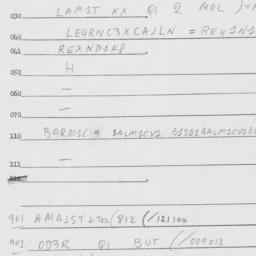 030 LAM1T XX Q1 2 MOL )=
040 LE4RNC3XCAJLN = REX1N1
041 REXND1KP
050 H
060 —
070 —
110 BARM1C = BALM1CV2 D1SD1BALM1CV2D
111 —
901 AMAJST1TEL(812 (/121100
902 OD3R Q1 BUT (/009013